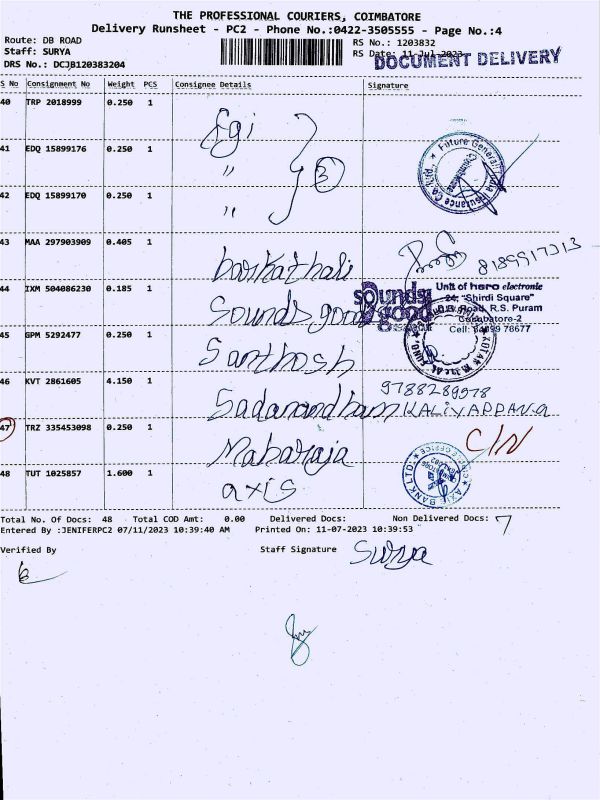 THE PROFESSIONAL COURIERS, COIMBATORE
Delivery Runsheet - PC2 - Phone No.:0422-3505555 - Page No.:4
Route: DB ROAD
RS No.: 1203832
Staff: SURYA
RS Date: 11-Jul-2023
DOCUMENT DELIVERY
DRS No.: DCJB120383204
S No Consignment No Weight PCS Consignee Details Signature
40 TRP 2018999 0.250 1 fgi
41 EDQ 15899176 0.250 1 " 3
Future Generali India Insurance Co.
42 EDQ 15899170 0.250 1 "
43 MAA 297903909 0.405 1 barkathali
44 IXM 504086230 0.185 1 Sounds good
sounds good
Unit of hero electronic
24, "Shirdi Square"
D.B. Road, R.S. Puram
Coimbatore-2
45 GPM 5292477 0.250 1 Santhosh
46 KVT 2861605 4.150 1 Sadanandham
9788289578
KALIYAPPAN.a
47 TRZ 335453098 0.250 1 Maharaja C/N
48 TUT 1025857 1.600 1 axis
AXIS BANK LTD
Total No. Of Docs: 48 Total COD Amt: 0.00 Delivered Docs: Non Delivered Docs: 7
Entered By :JENIFERPC2 07/11/2023 10:39:40 AM Printed On: 11-07-2023 10:39:53
Verified By Staff Signature Surya